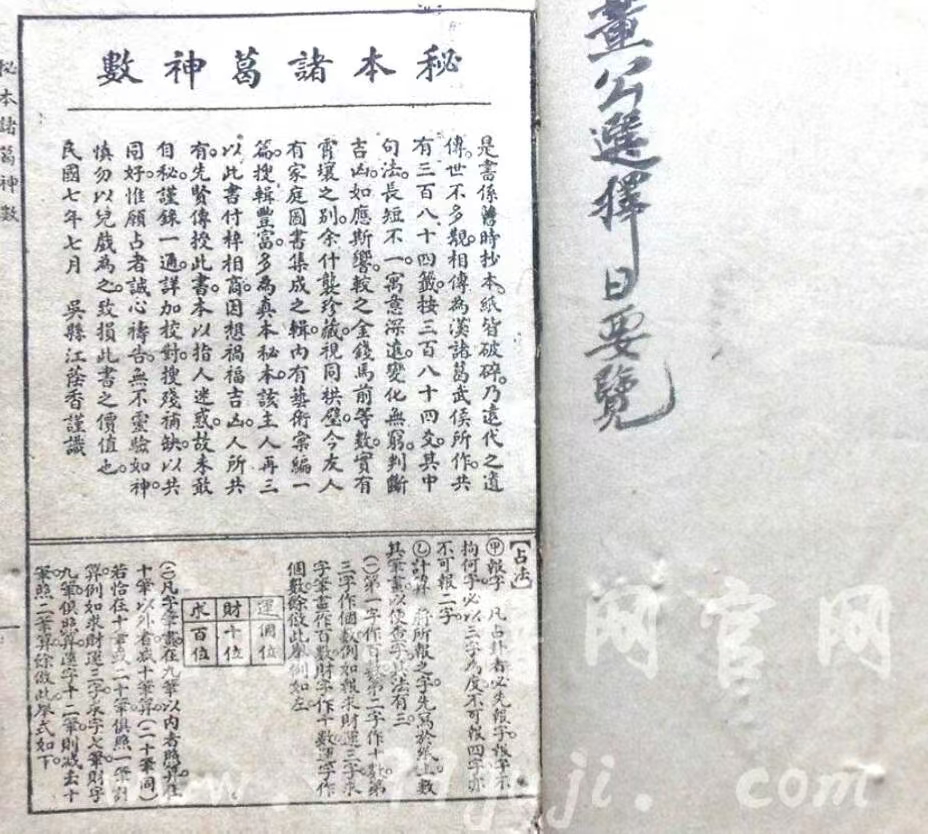 董公選擇日要覽
秘本諸葛神數
是書係舊時抄本紙皆破碎。乃遠代之遺
傳世不多覩。相傳為漢諸葛武侯所作。共
有三百八十四籤。按三百八十四爻。其中
句法。長短不一。寓意深遠。變化無窮。判斷
吉凶。如應斯響。較之金錢馬前等數。實有
霄壤之別。余什襲珍藏。視同拱璧。今友人
有家庭圖書集成之輯。內有藝術棠編一
篇。搜輯豐富。多為真本秘本。該主人再三
以此書付梓相商。因想禍福吉凶。人所共
有。先賢傳授此書。本以指人迷惑。故未敢
自秘。謹錄一通。詳加校對。搜殘補缺。以共
同好。惟願占者誠心禱告。無不靈驗如神。
慎勿以兒戲為之。致損此書之價值也。
民國七年七月 吳縣江蔭香謹識
秘本諸葛神數
【占法】
㊙甲報字 凡占卦者必先報字。報字不
拘何字。必以三字為度。不可報四字。亦
不可報二字。
乙計算 將所報之字先寫於紙上。數
其筆畫。以便查字。其法有三。
(一)第一字作百數。第二字作十數。第
三字作個數。例如報求財運三字。求
字筆畫作百數。財字作十數。運字作
個數。餘倣此。舉例如左
運 個位
財 十位
求 百位
(二)凡字筆畫在九筆以內者照算。在
十筆以外者。減十筆算(二十筆同)
若恰在十畫或二十筆。俱照一筆計
算。例如求財運三字。求字七筆。財字
九筆。俱照算。運字十二筆。則減去十
筆。照二筆算。餘倣此。舉式如下